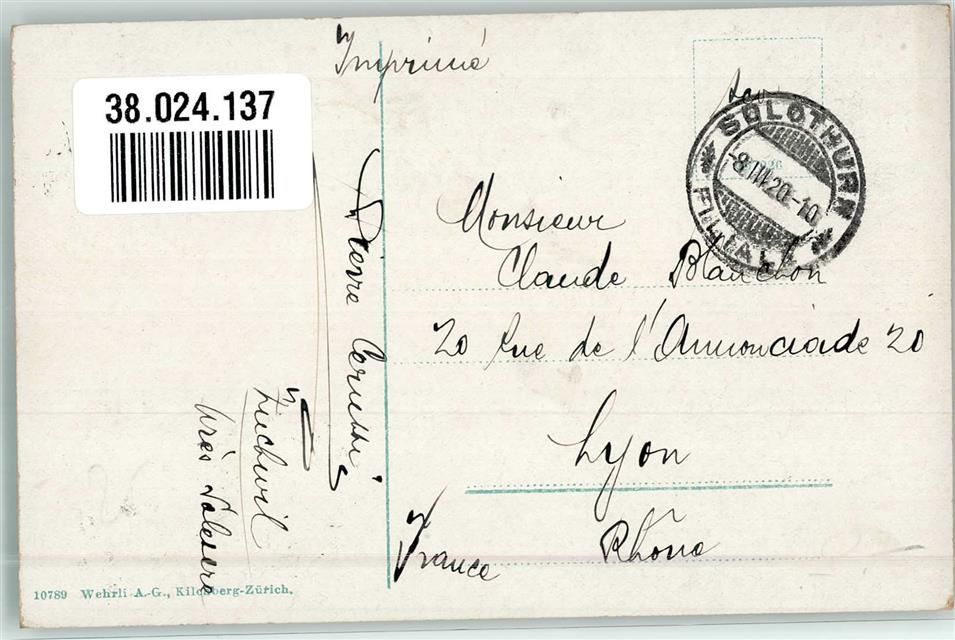 Imprimé
38.024.137
SOLOTHURN
-8.III.20.-10
FILIALE
Monsieur
Claude Blanchon
20 Rue de l'Annonciade 20
Lyon
Rhône
France
Pierre
Zuchwil
près
10789 Wehrli A.-G., Kilchberg-Zürich.